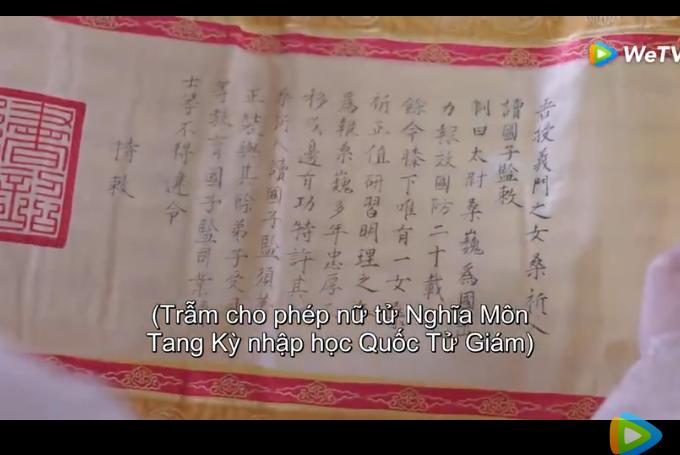 WeTV
告授義門之女桑祈入
讀國子監敕
制曰太尉桑巍為國
力報效國防二十載
餘今膝下唯有一女
祈正值研習明理之
為報桑巍多年忠厚
邊有功特許其
祈入讀國子監須
正裝與其餘弟子受
等教育國子監司業
士等不得違令
特敕
(Trẫm cho phép nữ tử Nghĩa Môn
Tang Kỳ nhập học Quốc Tử Giám)